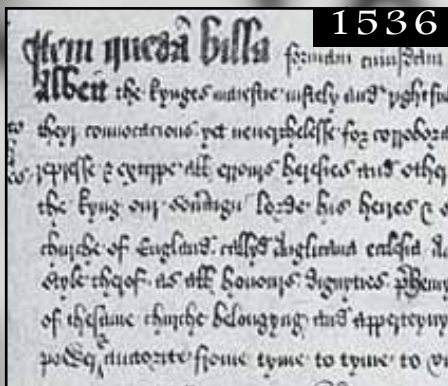 1536
Item quedã billa formam cuiusdam
Albeit the kynges maiestie iustely and ryghtfu
to theyr conuocacions yet neuerthelesse for corrobora
represse & extirpe all errours heresies and other
the kyng our souãign lorde his heires &
churche of England callyd Anglicana ecclesia
style therof as all honours dignyties
of thesame churche belongyng and apperteyny
auctorite frome tyme to tyme to